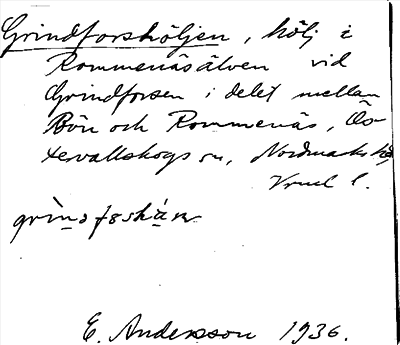 Grindforshöljen, hölj i
Rommenäsälven vid
Grindforsen i delet mellan
Bön och Rommenäs, Ös-
tervallskogs sn, Nordmarks hd,
Vrml l.
E. Andersson 1936.